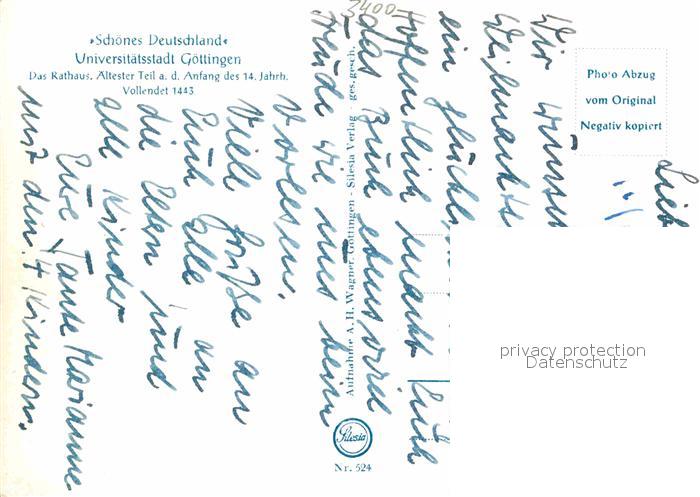 »Schönes Deutschland«
Universitätsstadt Göttingen
Das Rathaus. Ältester Teil a. d. Anfang des 14. Jahrh.
Vollendet 1443
3400
Photo Abzug
vom Original
Negativ kopiert
Aufnahme A. H. Wagner, Göttingen - Silesia Verlag - ges. gesch.
Silesia
Nr. 524
Lieb
Wir wünsch
Weihnachts
ein glückl
Hoffentlich macht Euch
das Buch ebensoviel
Freude wie uns beim
Vorlesen.
Viele Grüße an
Euch alle an
die Eltern und
alle Kinder
Eure Tante Marianne
mit den 4 Kindern.
privacy protection
Datenschutz